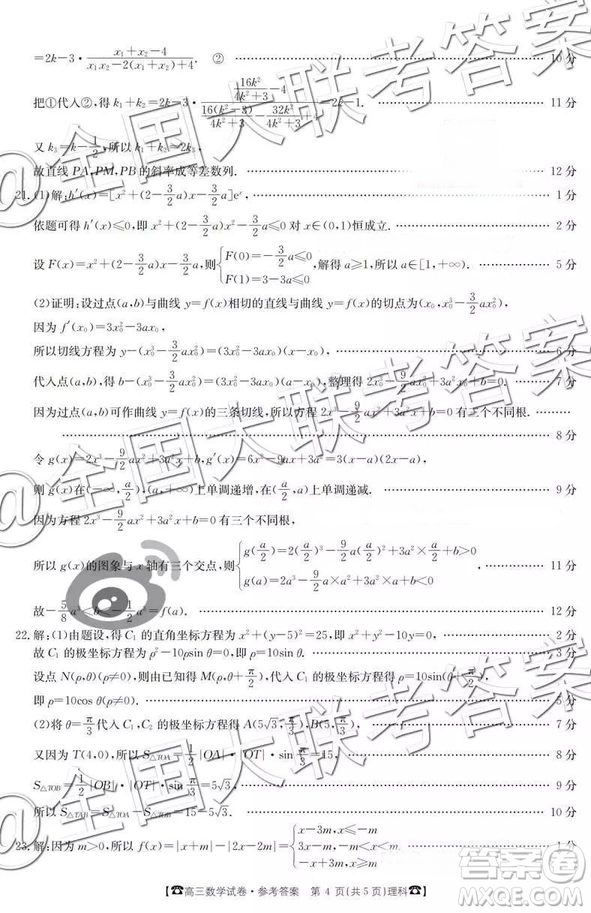 =2k-3·(x₁+x₂-4)/(x₁x₂-2(x₁+x₂)+4). ② 10分
把①代入②,得 k₁+k₂=2k-3· 11分
又 k₃=k-1/2,所以 k₁+k₂=2k₃,
故直线 PA,PM,PB 的斜率成等差数列. 12分
21.(1)解:h′(x)=[x²+(2-3/2a)x-3/2a]eˣ, 1分
依题可得 h′(x)≤0,即 x²+(2-3/2a)x-3/2a≤0 对 x∈(0,1)恒成立. 2分
设 F(x)=x²+(2-3/2a)x-3/2a,则{F(0)=-3/2a≤0 F(1)=3-3a≤0,解得 a≥1,所以 a∈[1,+∞). 5分
(2)证明:设过点(a,b)与曲线 y=f(x)相切的直线与曲线 y=f(x)的切点为(x₀,x₀³-3/2ax₀²),
因为 f′(x₀)=3x₀²-3ax₀,
所以切线方程为 y-(x₀³-3/2ax₀²)=(3x₀²-3ax₀)(x-x₀), 6分
代入点(a,b),得 b-(x₀³-3/2ax₀²)=(3x₀²-3ax₀)(a-x₀),整理得 2x₀³-9/2ax₀²+3a²x₀+b=0. 7分
因为过点(a,b)可作曲线 y=f(x)的三条切线,所以方程 2x³-9/2ax²+3a²x+b=0 有三个不同根.
8分
令 g(x)=2x³-9/2ax²+3a²x+b,g′(x)=6x²-9ax+3a²=3(x-a)(2x-a),
则 g(x)在(-∞,a/2),(a,+∞)上单调递增,在(a/2,a)上单调递减. 9分
因为方程 2x³-9/2ax²+3a²x+b=0 有三个不同根,
所以 g(x)的图象与 x 轴有三个交点,则{g(a/2)=2(a/2)³-9/2a(a/2)²+3a²×a/2+b>0 g(a)=2a³-9/2a×a²+3a²×a+b<0, 11分
故-5/8a³<b<-1/2a³=f(a). 12分
22.解:(1)由题设,得 C₁ 的直角坐标方程为 x²+(y-5)²=25,即 x²+y²-10y=0, 2分
故 C₁ 的极坐标方程为 ρ²-10ρsin θ=0,即 ρ=10sin θ. 3分
设点 N(ρ,θ)(ρ≠0),则由已知得 M(ρ,θ+π/2),代入 C₁ 的极坐标方程得 ρ=10sin(θ+π/2),
即 ρ=10cos θ(ρ≠0). 5分
(2)将 θ=π/3代入 C₁,C₂ 的极坐标方程得 A(5√3,π/3),B(5,π/3), 7分
又因为 T(4,0),所以 S△TOA=1/2|OA|·|OT|·sin π/3=15, 8分
S△TOB=1/2|OB|·|OT|·sin π/3=5√3, 9分
所以 S△TAB=S△TOA-S△TOB=15-5√3. 10分
23.解:因为 m>0,所以 f(x)=|x+m|-|2x-2m|={x-3m,x≤-m 3x-m,-m<x<m -x+3m,x≥m
☎高三数学试卷·参考答案 第 4 页(共 5 页)理科☎
@全国大联考答案